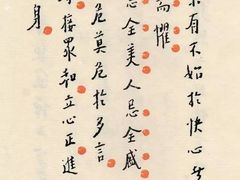 未有不始於快心
懼
忌全美人忌全盛
危莫危於多言
接眾立心正進
身